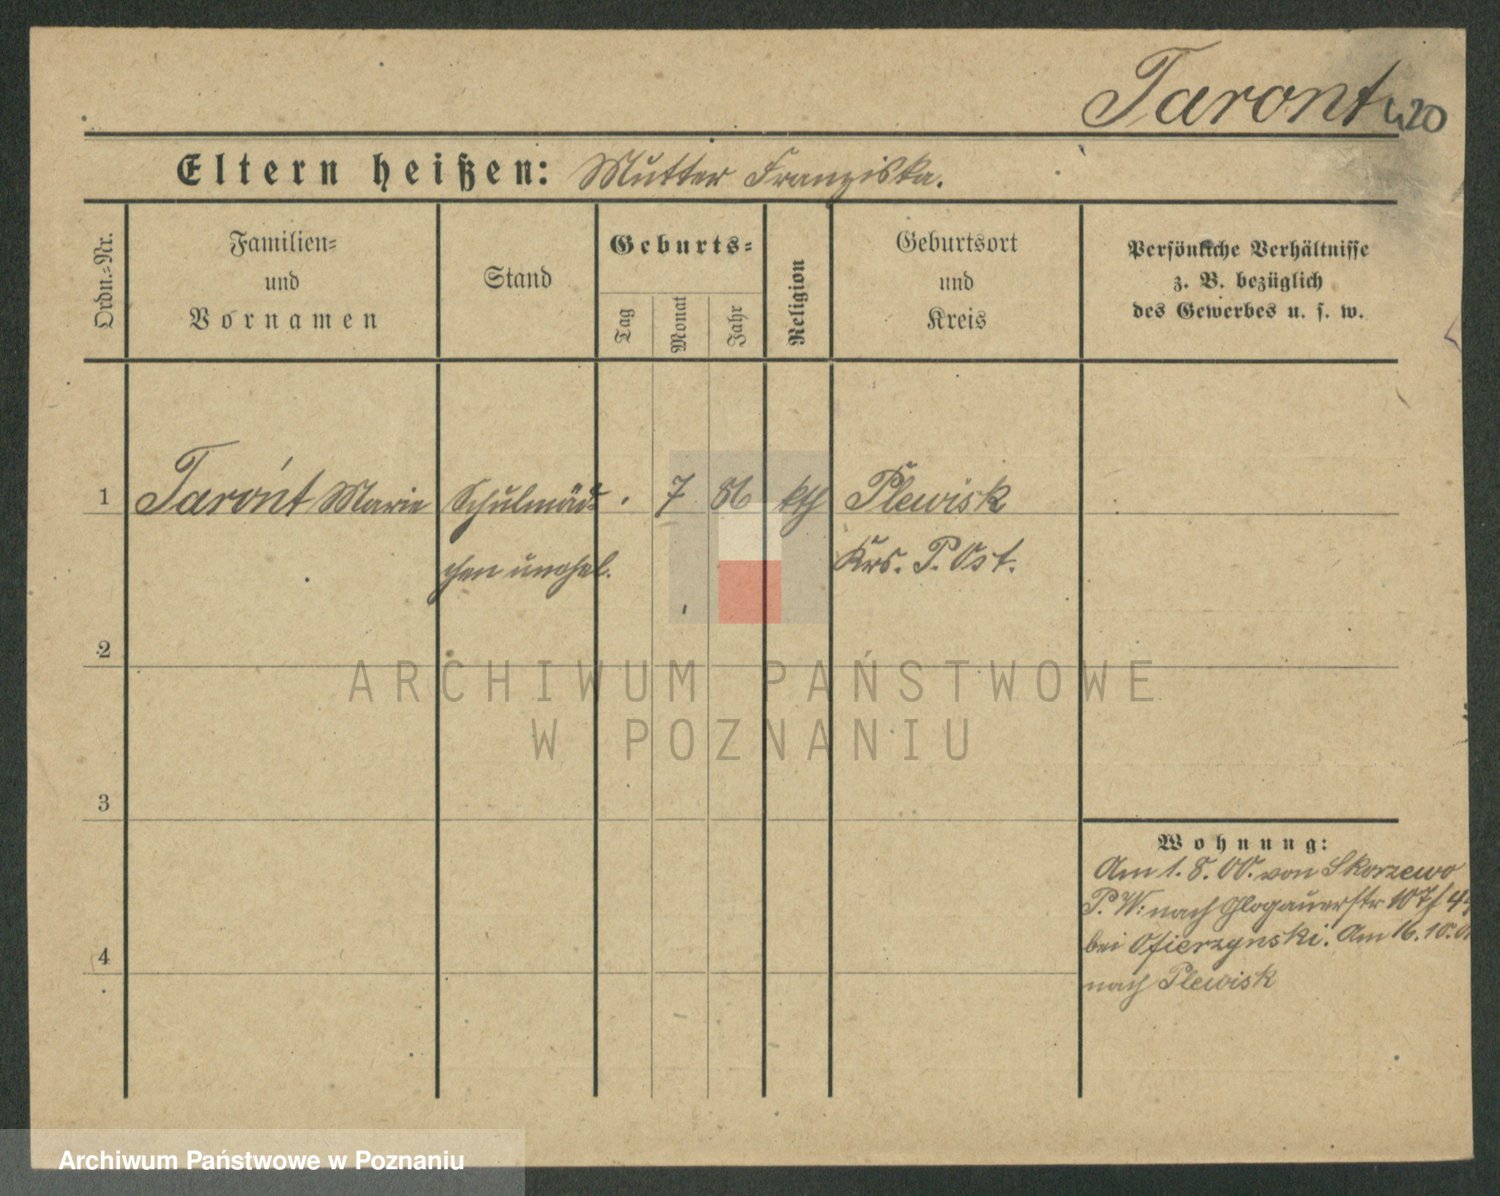 Taront 420
Eltern heißen: Mutter Franziska.
Ordn.=Nr.
Familien=
und
Vornamen
Stand
Geburts=
Tag
Monat
Jahr
Religion
Geburtsort
und
Kreis
Persönliche Verhältnisse
z. B. bezüglich
des Gewerbes u. s. w.
1 Taront Marie Schulmäd= . 7 86 kth Plewisk
chen unehel. Krs. P. Ost.
2
ARCHIWUM PAŃSTWOWE
W POZNANIU
3
Wohnung:
Am 1. 8. 00. von Skorzewo
P. W. nach Glogauerstr 107
bei Ofierzynski. Am 16. 10.
4
nach Plewisk
Archiwum Państwowe w Poznaniu